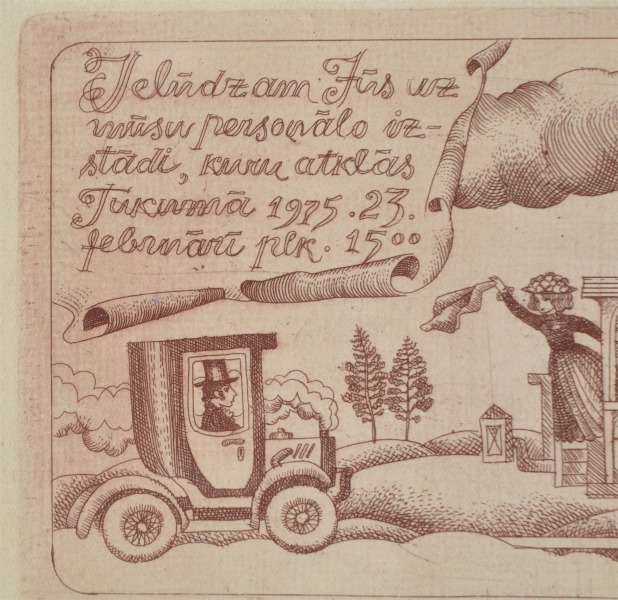 Ielūdzam Jūs uz
mūsu personālo iz-
stādi, kuru atklās
Tukumā 1975.23.
februārī plk. 15⁰⁰